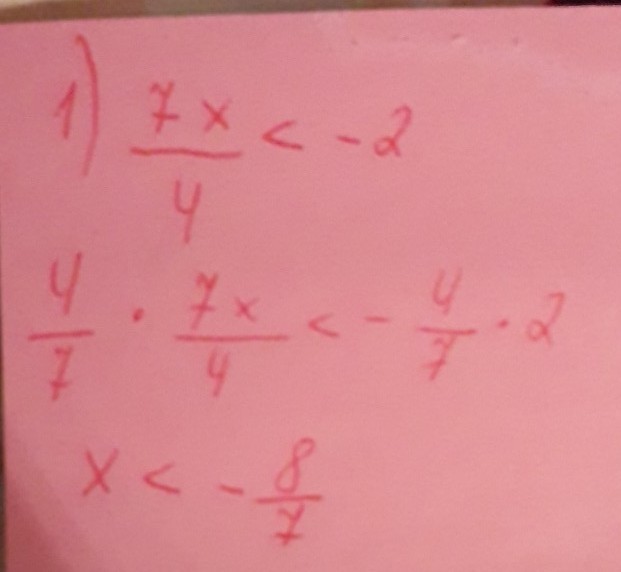 1) 7x/4 < -2
4/7 · 7x/4 < - 4/7 · 2
x < - 8/7